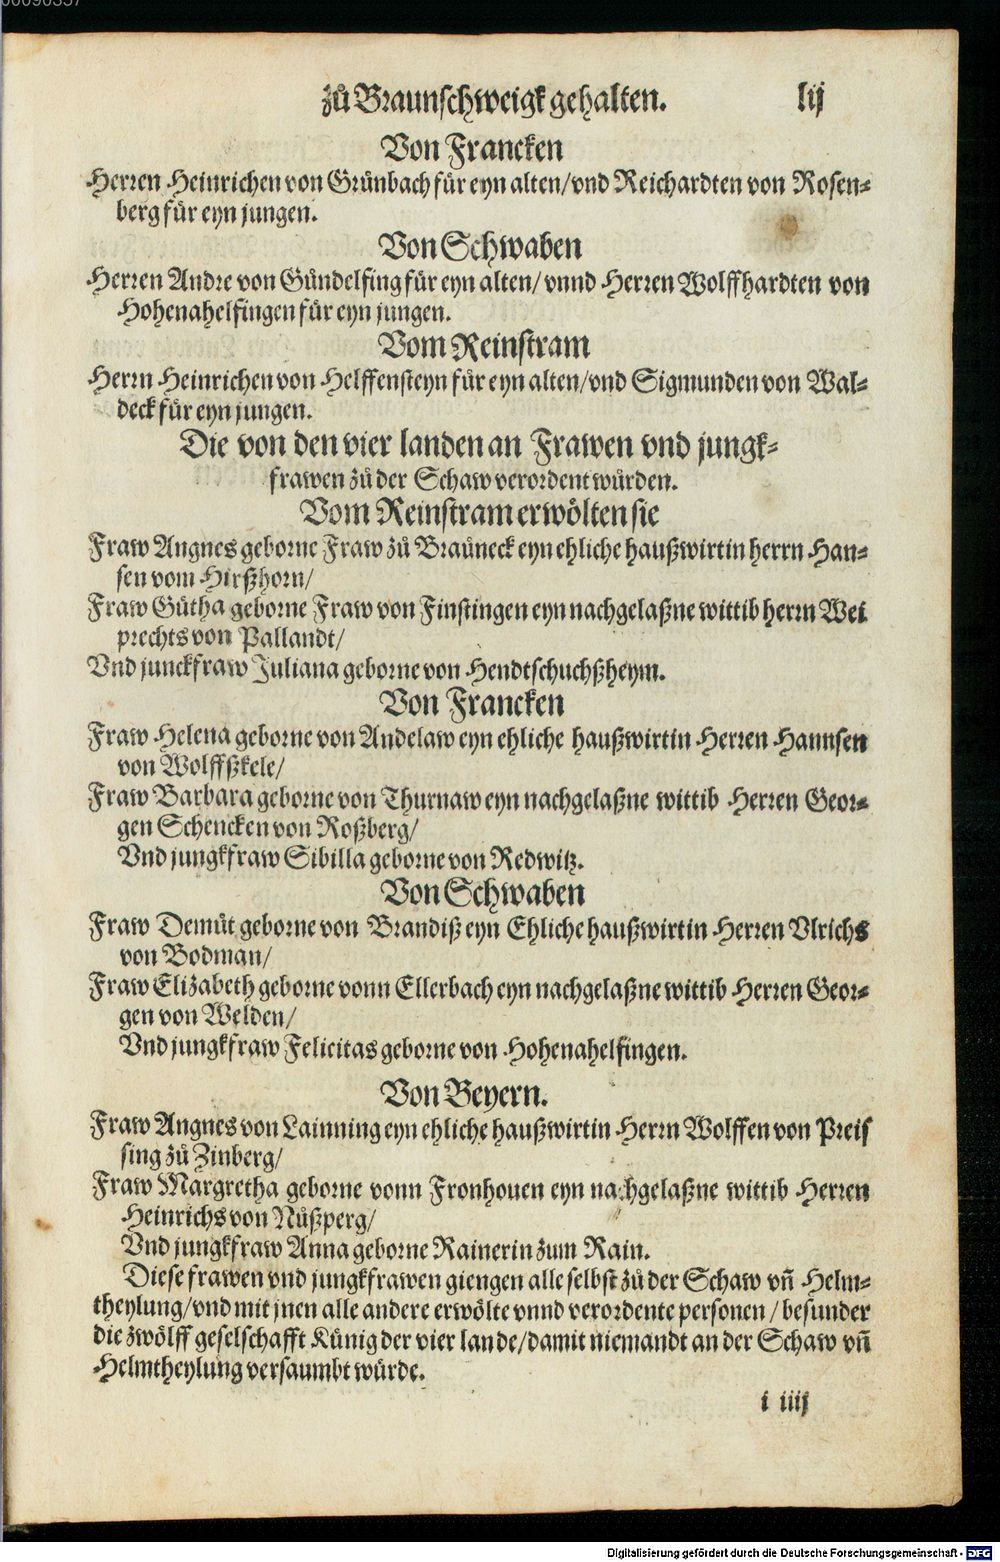 00090357
zů Braunschweigk gehalten. lij
Von Francken
Herren Heinrichen von Grünbach für eyn alten/ vnd Reichardten von Rosen⸗
berg für eyn jungen.
Von Schwaben
Herren Andre von Gündelfing für eyn alten/ vnnd Herren Wolffhardten von
Hohenahelfingen für eyn jungen.
Vom Reinstram
Herrn Heinrichen von Helffensteyn für eyn alten/ vnd Sigmunden von Wal⸗
deck für eyn jungen.
Die von den vier landen an Frawen vnd jungk⸗
frawen zů der Schaw verordent würden.
Vom Reinstram erwölten sie
Fraw Angnes geborne Fraw zů Braüneck eyn ehliche haußwirtin herrn Han⸗
sen vom Hirßhorn/
Fraw Gütha geborne Fraw von Finstingen eyn nachgelaßne wittib herrn Wei
prechts von Pallandt/
Vnd junckfraw Juliana geborne von Hendtschuchßheym.
Von Francken
Fraw Helena geborne von Andelaw eyn ehliche haußwirtin Herren Hannsen
von Wolffßkele/
Fraw Barbara geborne von Thurnaw eyn nachgelaßne wittib Herren Geor⸗
gen Schencken von Roßberg/
Vnd jungkfraw Sibilla geborne von Redwitz.
Von Schwaben
Fraw Demüt geborne von Brandiß eyn Ehliche haußwirtin Herren Vlrichs
von Bodman/
Fraw Elizabeth geborne vonn Ellerbach eyn nachgelaßne wittib Herren Geor⸗
gen von Welden/
Vnd jungkfraw Felicitas geborne von Hohenahelfingen.
Von Beyern.
Fraw Angnes von Lainning eyn ehliche haußwirtin Herrn Wolffen von Preis
sing zů Zinberg/
Fraw Margretha geborne vonn Fronhouen eyn nachgelaßne wittib Herren
Heinrichs von Nüßperg/
Vnd jungkfraw Anna geborne Rainerin zum Rain.
Diese frawen vnd jungkfrawen giengen alle selbst zů der Schaw vñ Helm⸗
theylung/ vnd mit jnen alle andere erwölte vnnd verordente personen / besunder
die zwölff geselschafft Künig der vier lande/ damit niemandt an der Schaw vñ
Helmtheylung versaumbt würde.
i iiij
Digitalisierung gefördert durch die Deutsche Forschungsgemeinschaft - DFG